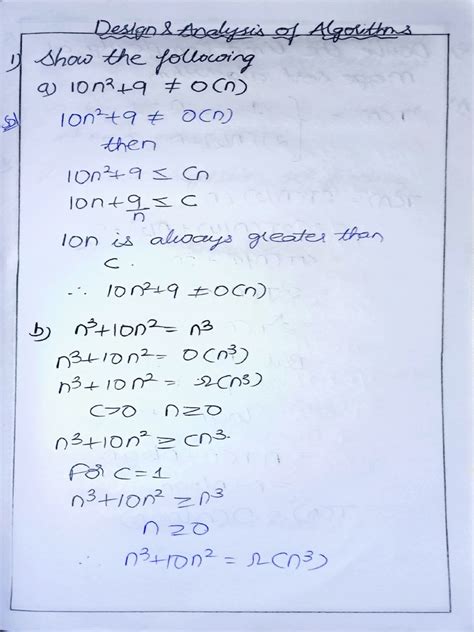 Design & Analysis of Algorithms
1) Show the following
a) 10n²+9 ≠ O(n)
S) 10n²+9 ≠ O(n)
then
10n²+9 ≤ Cn
10n+9/n ≤ C
10n is always greater than
C.
∴ 10n²+9 ≠ O(n)
b) n³+10n² = n³
n³+10n² = O(n³)
n³+10n² = Ω(n³)
C>0 n≥0
n³+10n² ≥ Cn³
For C=1
n³+10n² ≥ n³
n≥0
∴ n³+10n² = Ω(n³)